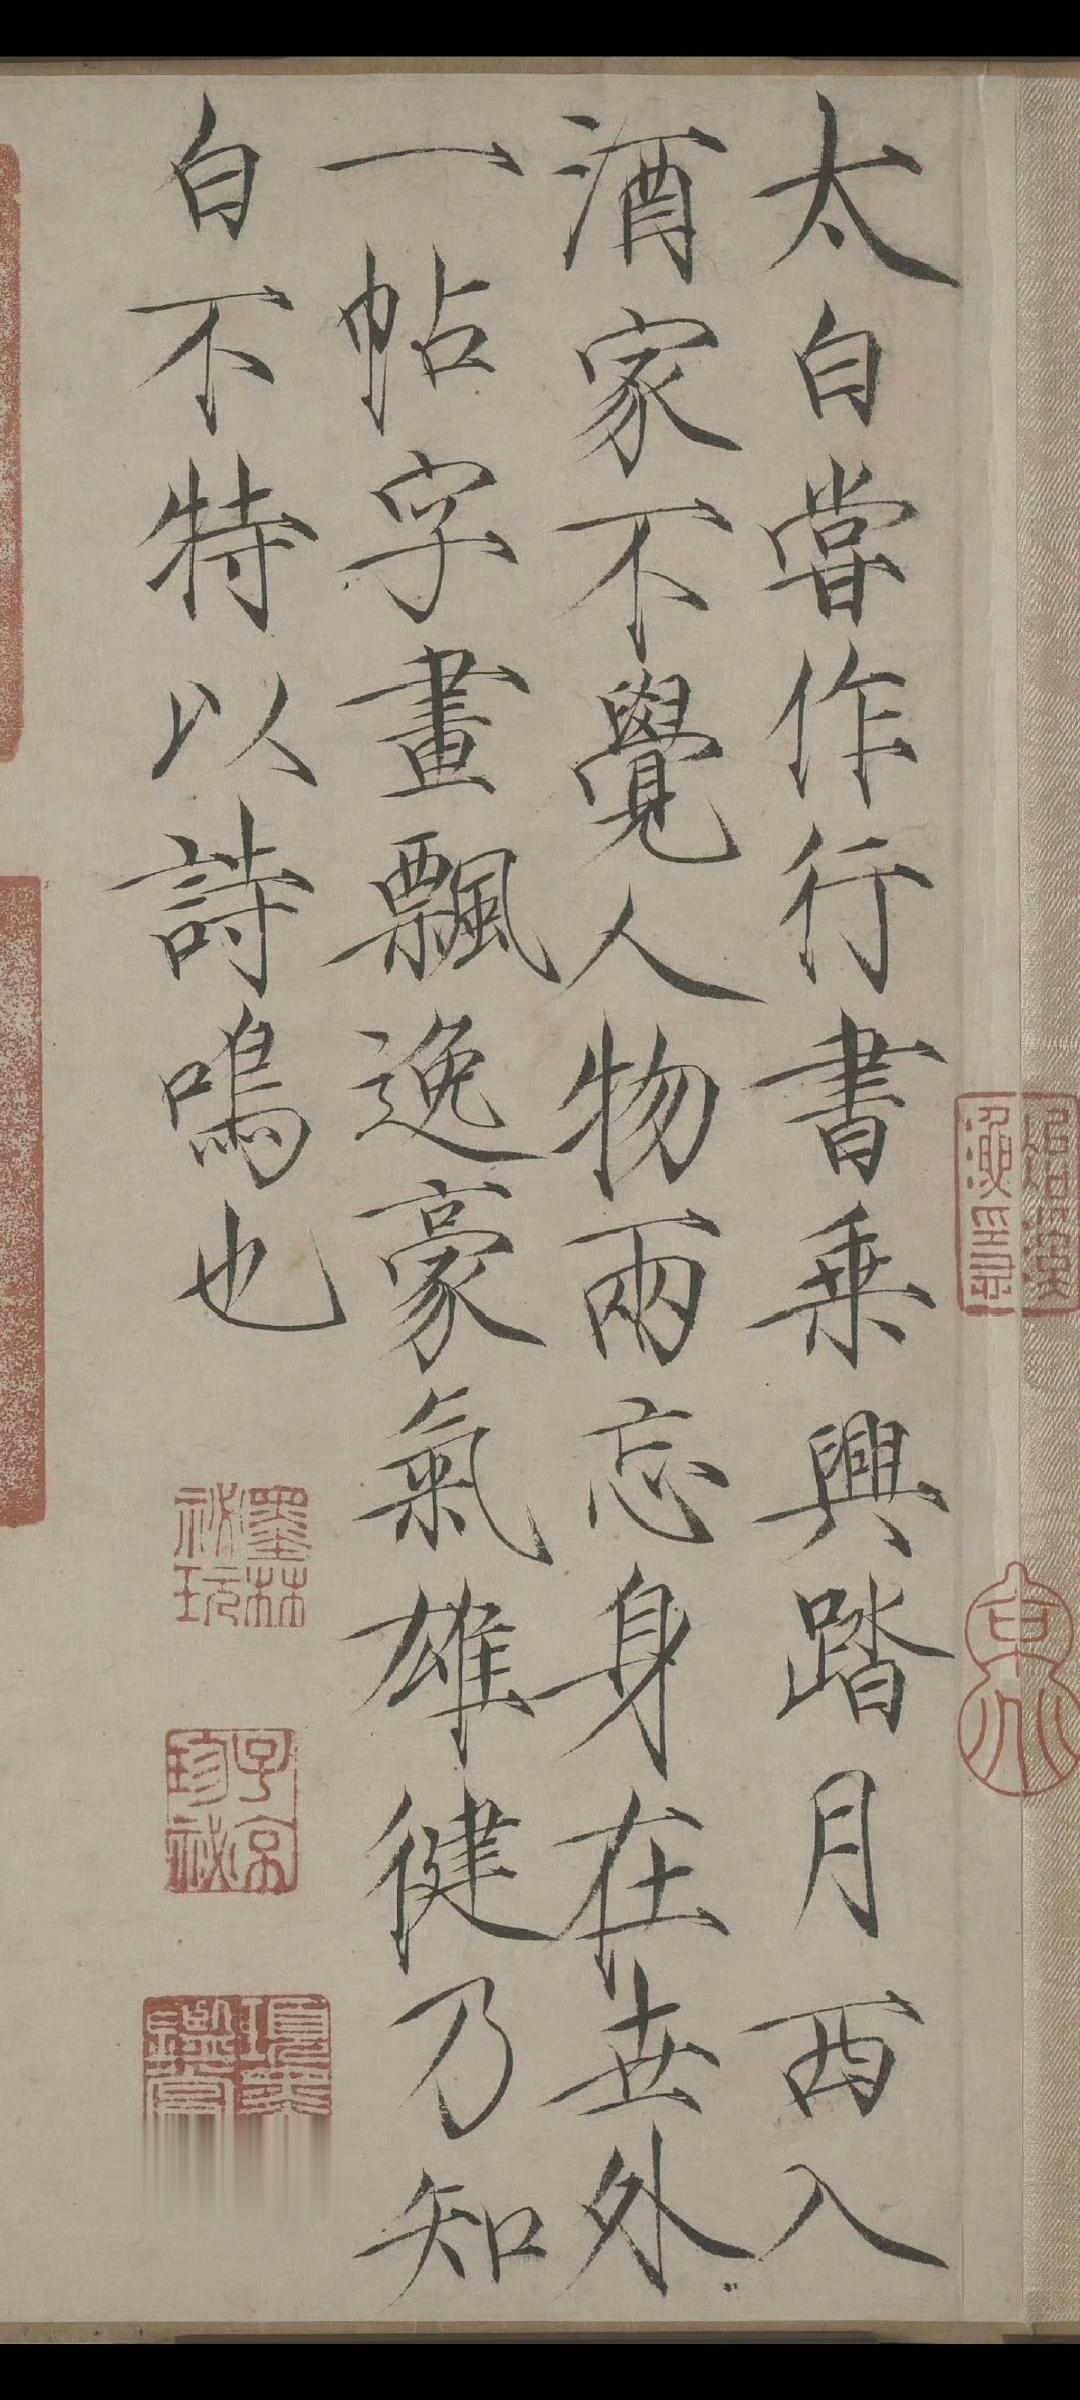 太白嘗作行書乗興踏月西入
酒家不覺人物兩忘身在世外
一帖字畫飄逸豪氣雄健乃知
白不特以詩鳴也
墨林祕玩
子京珍祕